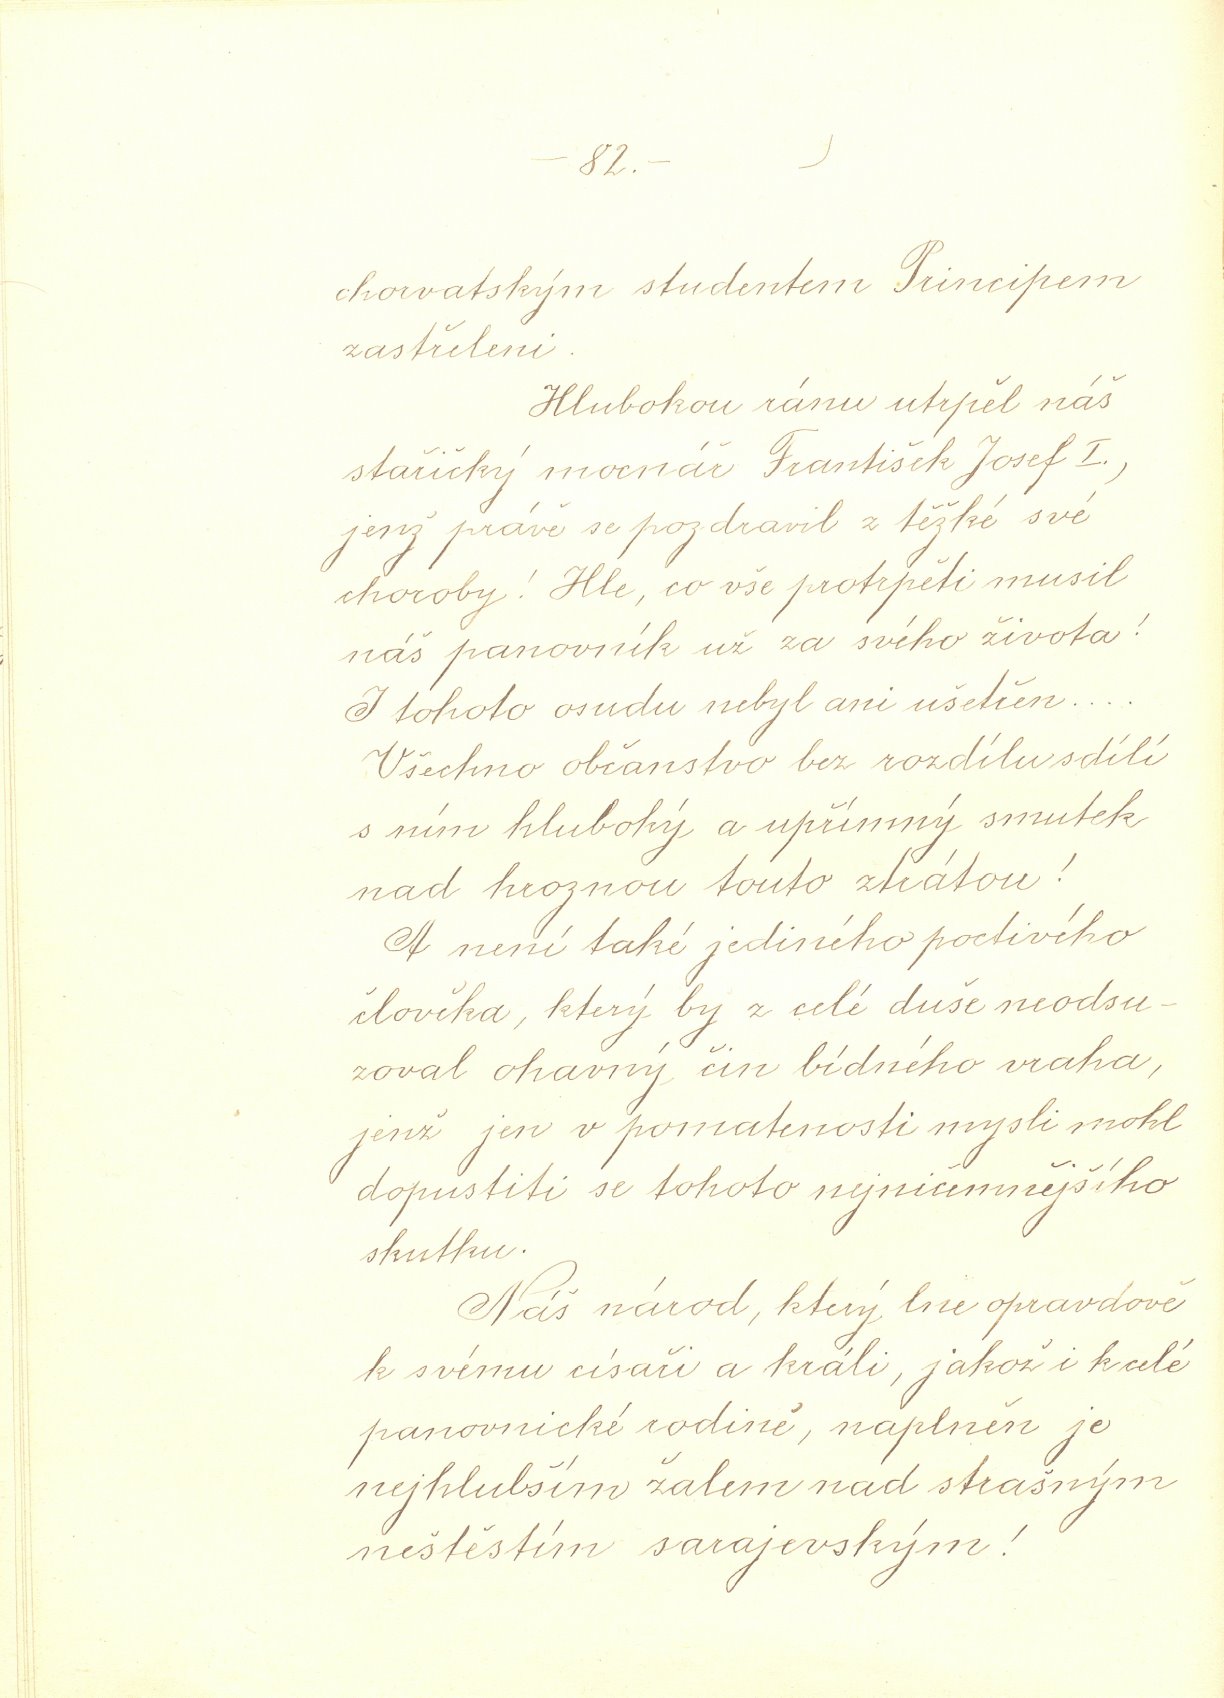 – 82. –
chorvatským studentem Principem
zastřeleni.
Hlubokou ránu utrpěl náš
stařičký mocnář František Josef I.,
jenž právě se pozdravil z těžké své
choroby! Hle, co vše protrpěti musil
náš panovník už za svého života!
I tohoto osudu nebyl ani ušetřen....
Všechno občanstvo bez rozdílu sdílí
s ním hluboký a upřímný smutek
nad hroznou touto ztrátou!
A není také jediného poctivého
člověka, který by z celé duše neodsu-
zoval ohavný čin bídného vraha,
jenž jen v pomatenosti mysli mohl
dopustiti se tohoto nejničemnějšího
skutku.
Náš národ, který lne opravdově
k svému císaři a králi, jakož i k celé
panovnické rodině, naplněn je
nejhlubším žalem nad strašným
neštěstím sarajevským!